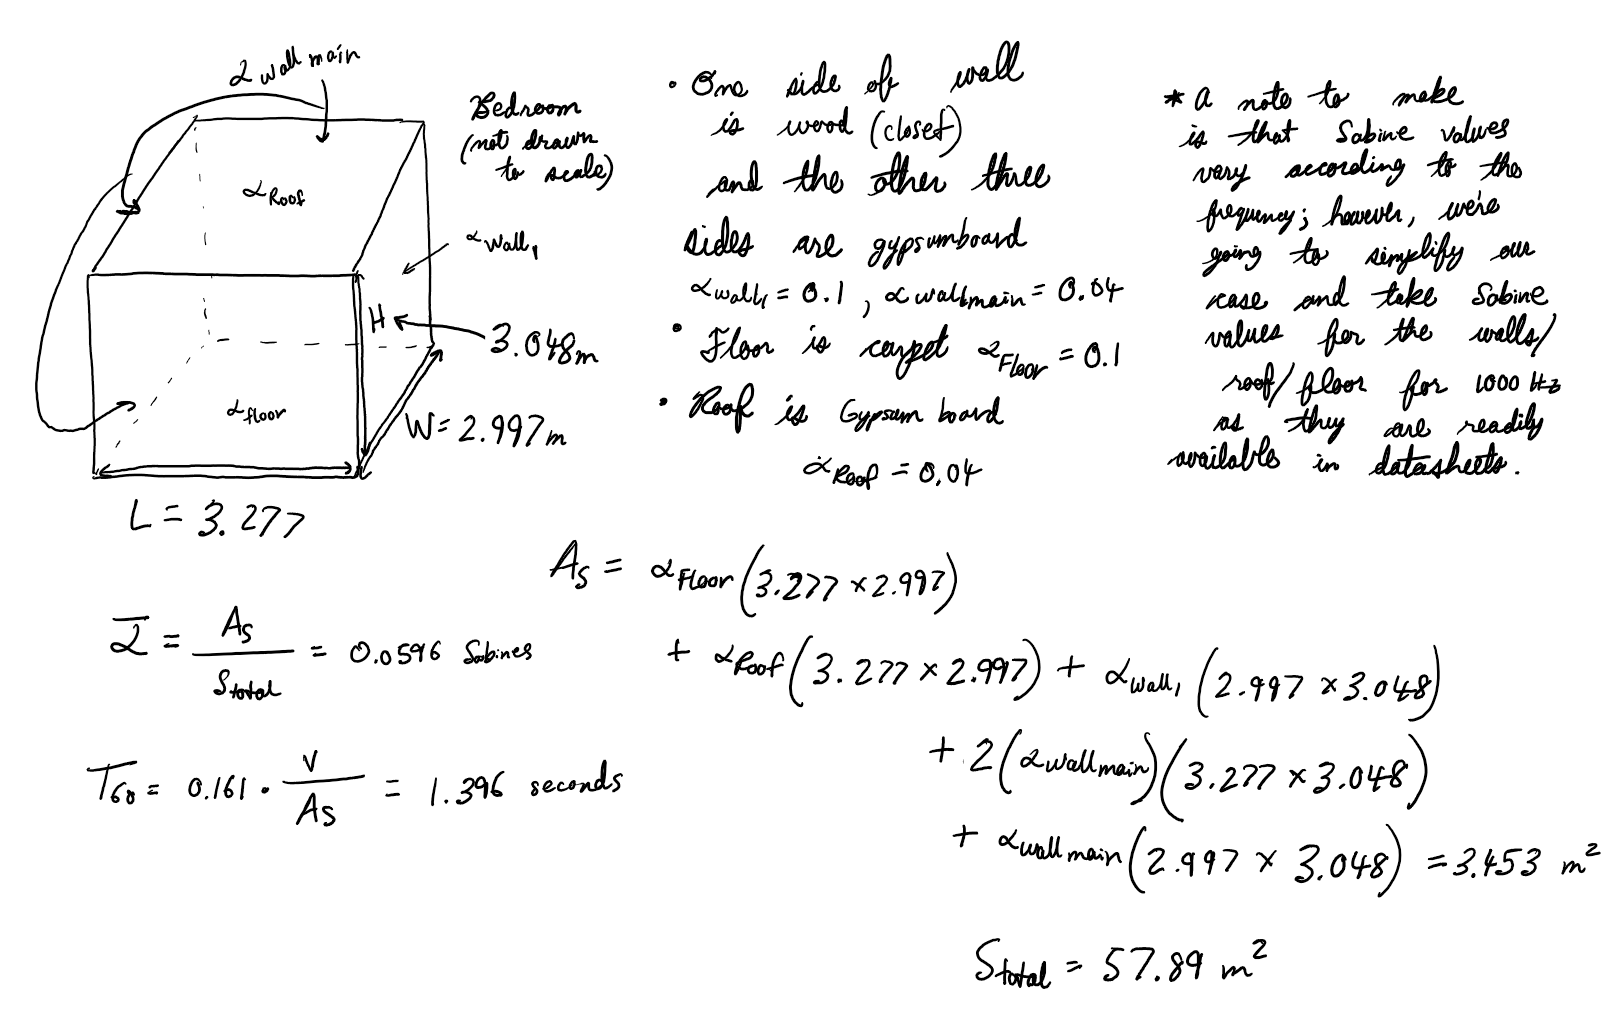 α wall main
Bedroom
(not drawn
to scale)
α Roof
α Wall₁
H
3.048m
α floor
W = 2.997m
L = 3.277
• One side of wall
is wood (closet)
and the other three
sides are gypsumboard
α wall₁ = 0.1 , α wallmain = 0.04
• Floor is carpet α Floor = 0.1
• Roof is Gypsum board
α Roof = 0.04
* A note to make
is that Sabine values
vary according to the
frequency; however, we're
going to simplify our
case and take Sabine
values for the walls/
roof/floor for 1000 Hz
as they are readily
available in datasheets.
A_S = α Floor (3.277 × 2.997)
+ α Roof (3.277 × 2.997) + α Wall₁ (2.997 × 3.048)
+ 2(α wallmain)(3.277 × 3.048)
+ α wall main (2.997 × 3.048) = 3.453 m²
S total = 57.89 m²
ᾱ = A_S / S total = 0.0596 Sabines
T₆₀ = 0.161 · V / A_S = 1.396 seconds